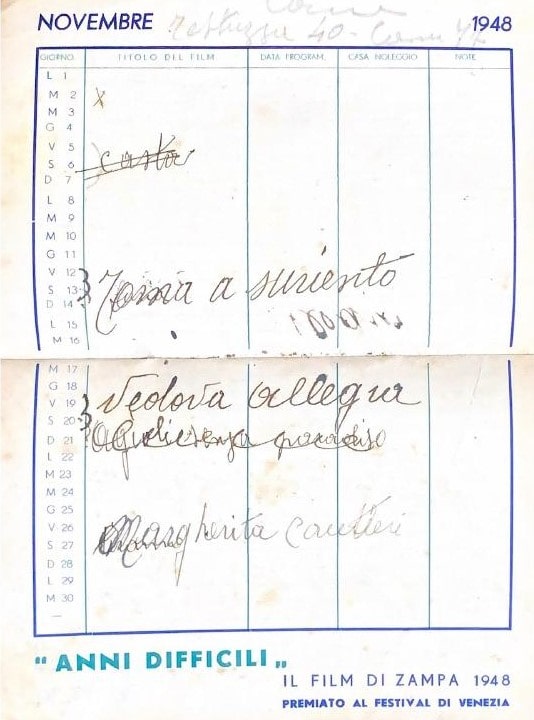 NOVEMBRE 1948
40 -
GIORNO. TITOLO DEL FILM DATA PROGRAM. CASA NOLEGGIO NOTE
L 1
M 2 x
M 3
G 4
V 5
S 6 casta
D 7
L 8
M 9
M 10
G 11
V 12
S 13 Torna a suriento
D 14
L 15
M 16
M 17
G 18
V 19 Vedova allegra
S 20
D 21 paradiso
L 22
M 23
M 24
G 25
V 26
S 27 Margherita
D 28
L 29
M 30
—
"ANNI DIFFICILI„
IL FILM DI ZAMPA 1948
PREMIATO AL FESTIVAL DI VENEZIA